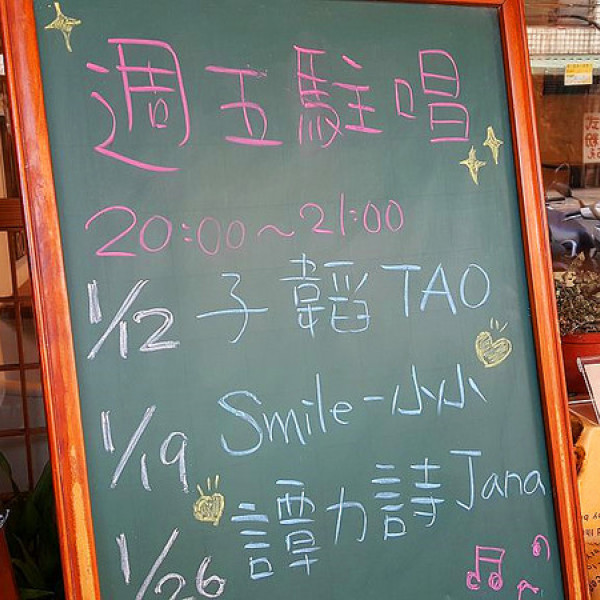 週五駐唱
20:00~21:00
1/12 子韜TAO
1/19 Smile-小小
1/26 譚力詩Jana